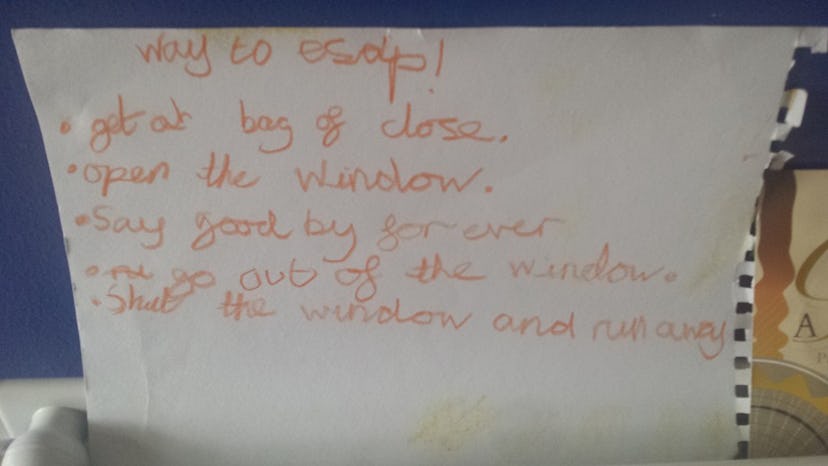 way to esdp!
• get at bag of close.
• open the window.
• Say good by for ever
• go out of the window.
• Shut the window and run away
A